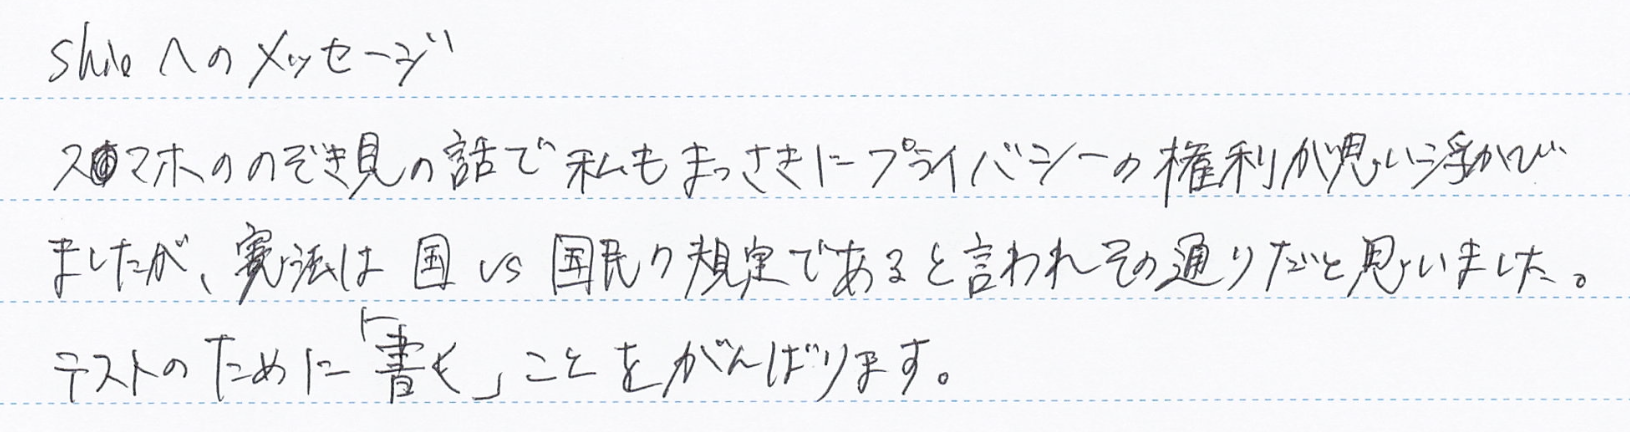 Shioへのメッセージ
スマホののぞき見の話で私もまっさきにプライバシーの権利が思い浮かび
ましたが、憲法は国vs国民の規定であると言われその通りだと思いました。
テストのために「書く」ことをがんばります。